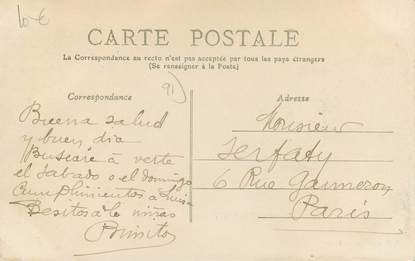 10 €
CARTE POSTALE
La Correspondance au recto n'est pas acceptée par tous les pays étrangers
(Se renseigner à la Poste)
91
Correspondance
Buena salud
y buen dia
Buscare a verte
el sabado o el domingo
Cumplimientos a Luisa
Besitos a la niñas
Adresse
Monsieur
Serfaty
6 Rue Ganneron
Paris